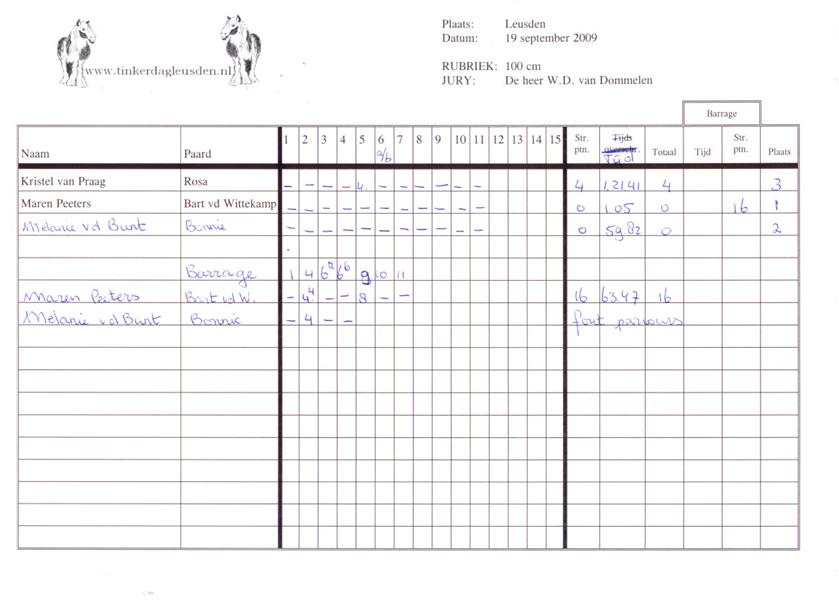 www.tinkerdagleusden.nl
Plaats: Leusden
Datum: 19 september 2009
RUBRIEK: 100 cm
JURY: De heer W.D. van Dommelen
Barrage
Naam Paard 1 2 3 4 5 6 a/b 7 8 9 10 11 12 13 14 15 Str. ptn. Tijds overschr. Tijd Totaal Tijd Str. ptn. Plaats
Kristel van Praag Rosa – – – – 4 – – – – – – 4 1.21.41 4 3
Maren Peeters Bart vd Wittekamp – – – – – – – – – – – 0 1.05 0 16 1
Melanie vd Bunt Bonnie – – – – – – – – – – – 0 59.82 0 2
Barrage 1 4 6a 6b 9 10 11
Maren Peeters Bart vd W. – 4 4 – – 8 – – 16 63.47 16
Melanie vd Bunt Bonnie – 4 – – fout parcours